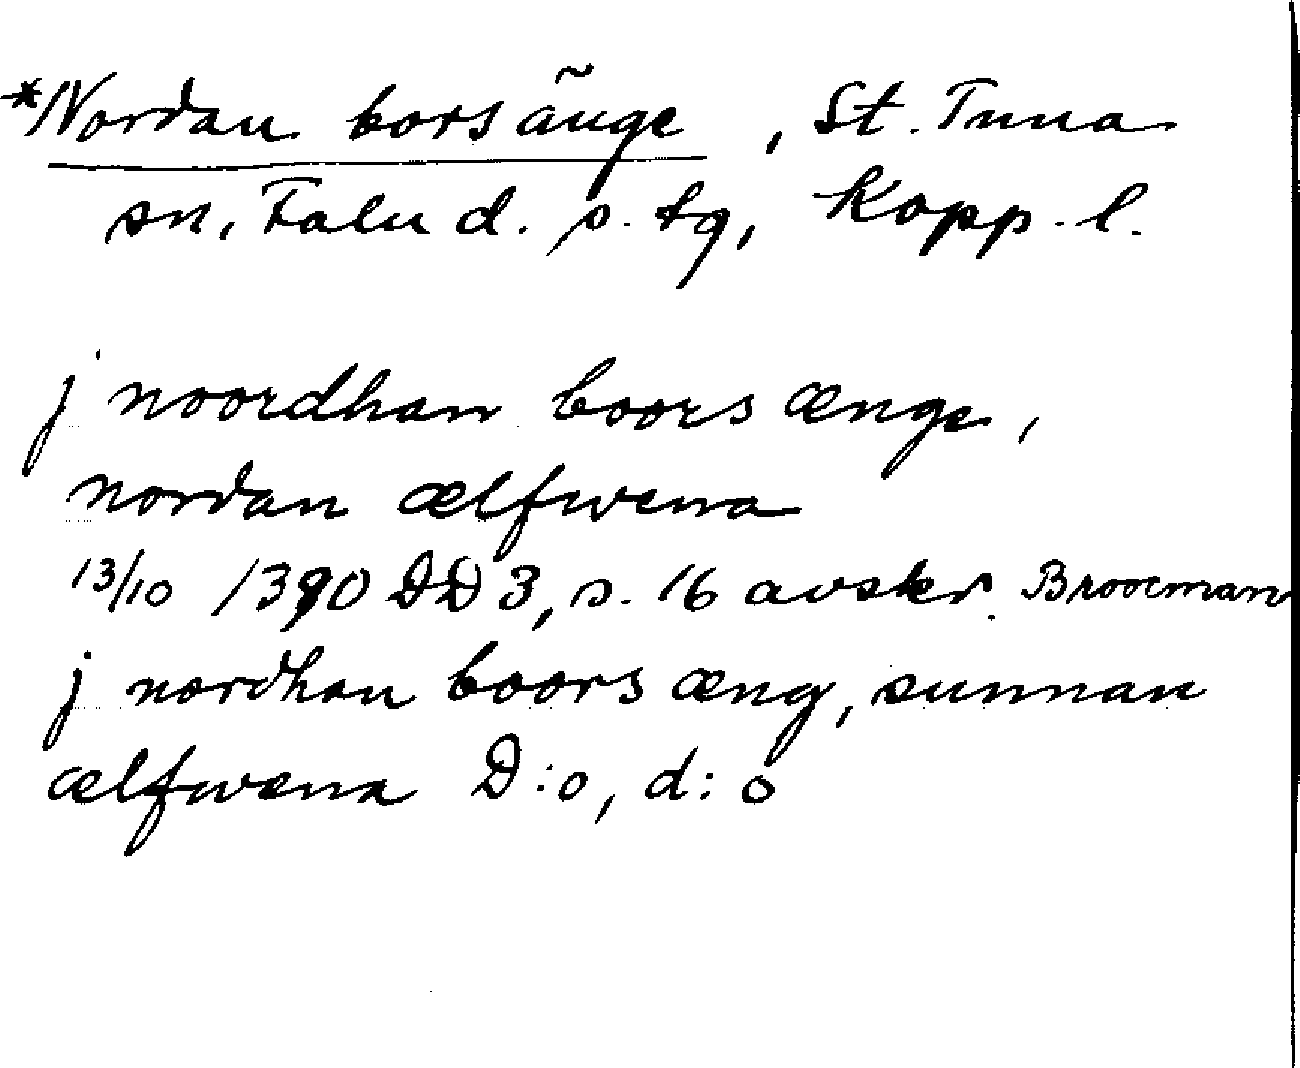 *Nordan borsänge, St. Tuna
sn, Falu d. s. tg, Kopp. l.
j noordhan boors ænge,
nordan ælfwena
13/10 1390 DD 3, s. 16 avskr. Broocman
j nordhan boors æng, sunnan
ælfwæna D:o, d:o